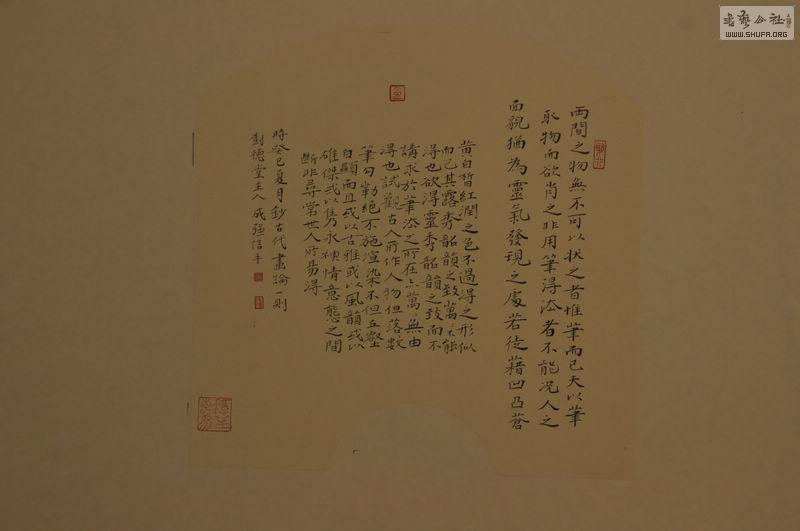 兩間之物無不可以狀之者惟筆而已夫以筆
取物而欲肖之非用筆得法者不能況人之
面貌猶為靈氣發現之處若徒藉凹凸蒼
黃白皙紅潤之色不過得之形似
而已其露秀韶韻之致萬不能
得也欲得靈秀韶韻之致而不
講求於筆法之所在亦萬萬無由
得也試觀古人所作人物但落數
筆勾勒絕不施渲染不但丘壑
自顯而且或以古雅或以風韻或以
雄傑或以雋永神情意態之間
斷非尋常世人所易得
時癸巳夏月鈔古代畫論一則
對德堂主人成強信手
書藝公社
WWW.SHUFA.ORG